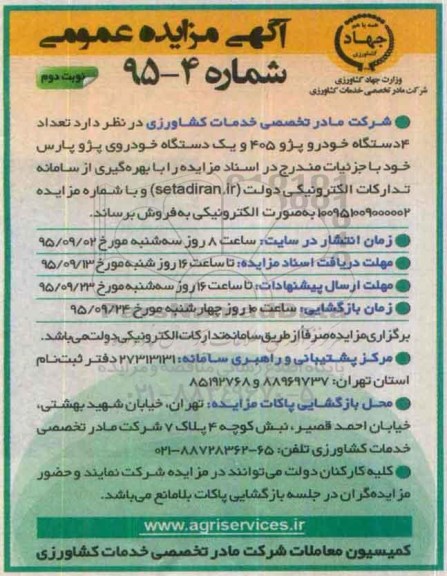 آگهی مزایده عمومی
شماره ۴-۹۵
نوبت دوم
همه با هم
جهاد
کشاورزی
وزارت جهاد کشاورزی
شرکت مادر تخصصی خدمات کشاورزی
شرکت مادر تخصصی خدمات کشاورزی در نظر دارد تعداد
۴دستگاه خودرو پژو ۴۰۵ و یک دستگاه خودروی پژو پارس
خود با جزئیات مندرج در اسناد مزایده را با بهره‌گیری از سامانه
تدارکات الکترونیکی دولت (setadiran.ir) و با شماره مزایده
۱۰۰۹۵۱۰۰۹۰۰۰۰۰۲ به‌صورت الکترونیکی به‌فروش برساند.
زمان انتشار در سایت: ساعت ۸ روز سه‌شنبه مورخ ۹۵/۰۹/۰۲
مهلت دریافت اسناد مزایده: تا ساعت ۱۶ روز شنبه مورخ ۹۵/۰۹/۱۳
مهلت ارسال پیشنهادات: تا ساعت ۱۶ روز سه شنبه مورخ ۹۵/۰۹/۲۳
زمان بازگشایی: ساعت ۱۰ روز چهارشنبه مورخ ۹۵/۰۹/۲۴
برگزاری مزایده صرفاً از طریق سامانه تدارکات الکترونیکی دولت می‌باشد.
مرکز پشتیبانی و راهبری سامانه: ۲۷۳۱۳۱۳۱ دفتر ثبت‌نام
استان تهران: ۸۸۹۶۹۷۳۷ و ۸۵۱۹۲۷۶۸
محل بازگشایی پاکات مزایده: تهران، خیابان شهید بهشتی،
خیابان احمد قصیر، نبش کوچه ۴ پلاک ۷ شرکت مادر تخصصی
خدمات کشاورزی تلفن: ۶۵-۸۸۷۲۸۳۶۲-۰۲۱
کلیه کارکنان دولت می‌توانند در مزایده شرکت نمایند و حضور
مزایده‌گران در جلسه بازگشایی پاکات بلامانع می‌باشد.
www.agriservices.ir
کمیسیون معاملات شرکت مادر تخصصی خدمات کشاورزی